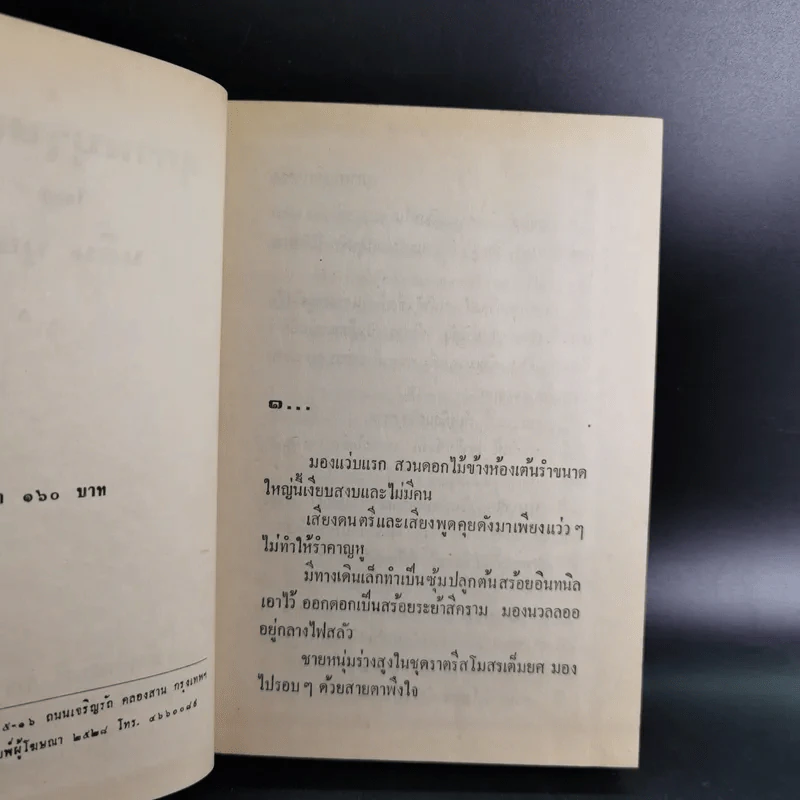 ๑๖๐ บาท
ถนนเจริญรัถ คลองสาน กรุงเทพฯ
ผู้โฆษณา ๒๕๒๘ โทร. ๔๖๖๐๐๘๕
๑...
มองแว่บแรก สวนดอกไม้ข้างห้องเต้นรำขนาด
ใหญ่นี้เงียบสงบและไม่มีคน
เสียงดนตรีและเสียงพูดคุยดังมาเพียงแว่ว ๆ
ไม่ทำให้รำคาญหู
มีทางเดินเล็กทำเป็นซุ้มปลูกต้นสร้อยอินทนิล
เอาไว้ ออกดอกเป็นสร้อยระย้าสีคราม มองนวลลออ
อยู่กลางไฟสลัว
ชายหนุ่มร่างสูงในชุดราตรีสโมสรเต็มยศ มอง
ไปรอบๆ ด้วยสายตาพึงใจ